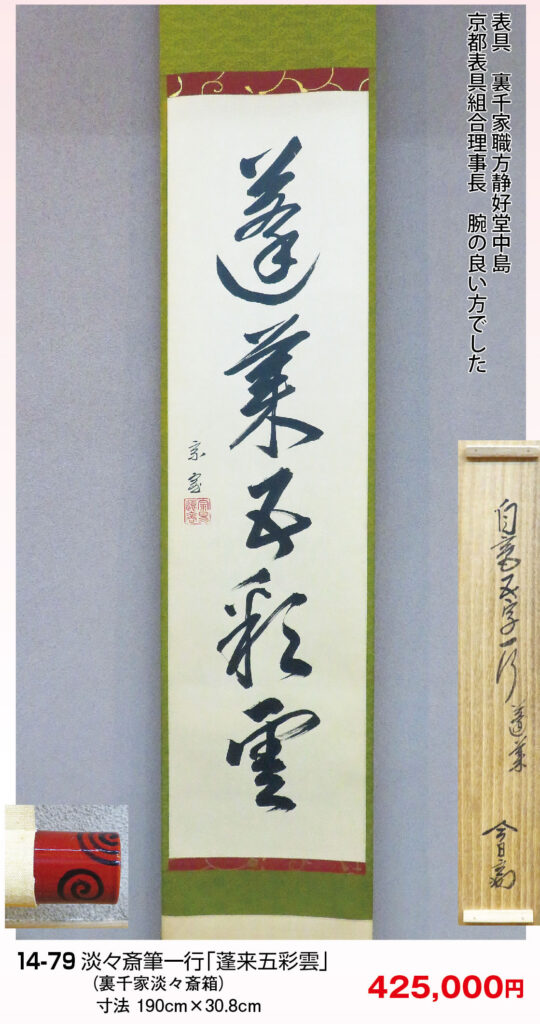 表具　裏千家職方静好堂中島
京都表具組合理事長　腕の良い方でした
蓬莱五彩雲
宗室
自書五字一行
蓬莱
今日庵
14-79 淡々斎筆一行「蓬来五彩雲」
（裏千家淡々斎箱）
寸法 190cm×30.8cm
425,000円